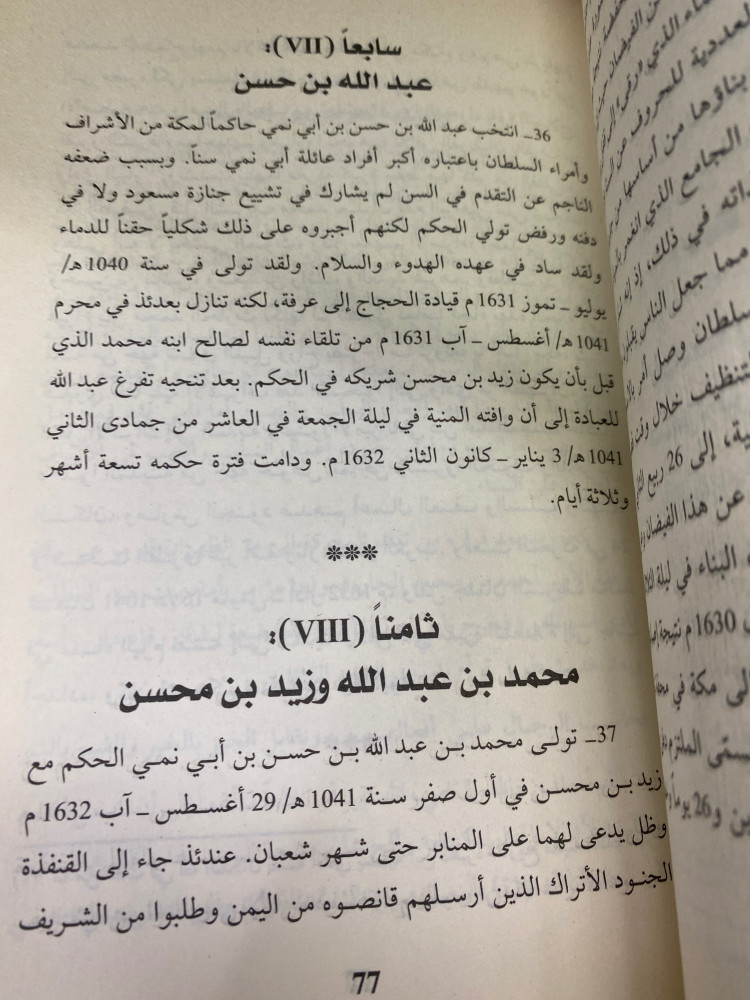 سابعاً (VII):
عبد الله بن حسن
36ـ انتخب عبد الله بن حسن بن أبي نمي حاكماً لمكة من الأشراف
وأمراء السلطان باعتباره أكبر أفراد عائلة أبي نمي سناً. وبسبب ضعفه
الناجم عن التقدم في السن لم يشارك في تشييع جنازة مسعود ولا في
دفنه ورفض تولي الحكم لكنهم أجبروه على ذلك شكلياً حقناً للدماء
ولقد ساد في عهده الهدوء والسلام. ولقد تولى في سنة 1040 هـ/
يوليو ـ تموز 1631 م قيادة الحجاج إلى عرفة، لكنه تنازل بعدئذ في محرم
1041 هـ/ أغسطس ـ آب 1631 م من تلقاء نفسه لصالح ابنه محمد الذي
قبل بأن يكون زيد بن محسن شريكه في الحكم. بعد تنحيه تفرغ عبد الله
للعبادة إلى أن وافته المنية في ليلة الجمعة في العاشر من جمادى الثاني
1041 هـ/ 3 يناير ـ كانون الثاني 1632 م. ودامت فترة حكمه تسعة أشهر
وثلاثة أيام.
***
ثامناً (VIII):
محمد بن عبد الله وزيد بن محسن
37ـ تولى محمد بن عبد الله بن حسن بن أبي نمي الحكم مع
زيد بن محسن في أول صفر سنة 1041 هـ/ 29 أغسطس ـ آب 1632 م
وظل يدعى لهما على المنابر حتى شهر شعبان. عندئذ جاء إلى القنفذة
الجنود الأتراك الذين أرسلهم قانصوه من اليمن وطلبوا من الشريف
77
العددية للحروف
بناؤها من أساسها من
الجامع الذي
في ذلك، إذ إنه
مما جعل الناس
وصل أمر
خلال وقت
إلى 26 ربيع
عن هذا الفيضان
البناء في ليلة
1630 م نتيجة
مكة في
الملتزم
و26 يوماً